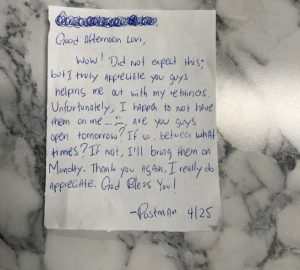 Good Afternoon Lori,
Wow! Did not expect this;
but I truly appreciate you guys
helping me out with my retainers.
Unfortunately, I happen to not have
them on me... Are you guys
open tomorrow? If so, between what
times? If not, I'll bring them on
Monday. Thank you again. I really do
appreciate. God Bless You!
-Postman 4/25